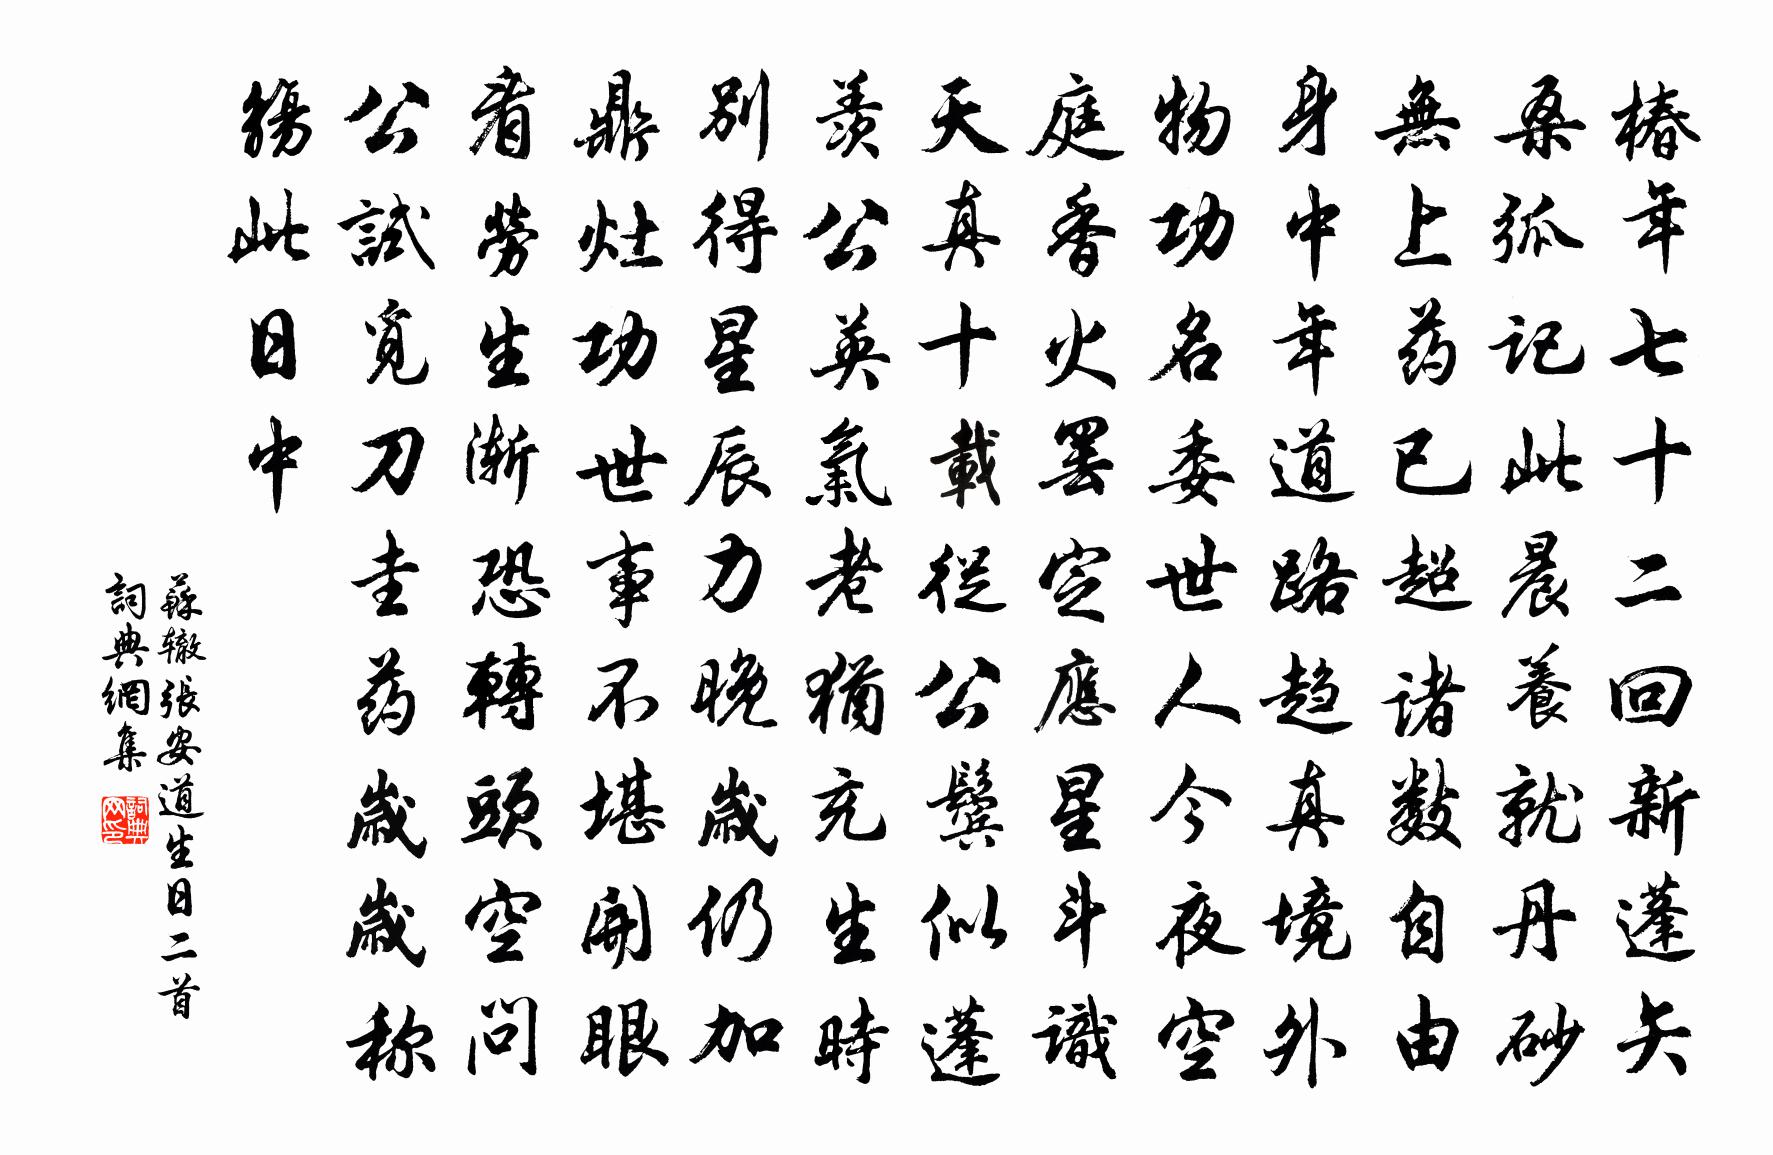 椿年七十二回新蓬矢
桑弧記此晨養就丹砂
無上药已超諸數自由
身中年道路趋真境外
物功名委世人今夜空
庭香火罢定應星斗識
天真十載從公鬢似蓬
羨公英氣老猶充生時
別得星辰力晚歲仍加
鼎灶功世事不堪開眼
看勞生漸恐轉頭空問
公試覓刀圭药歲歲称
觴此日中
蘇辙張安道生日二首
詞典網集
詞典网印